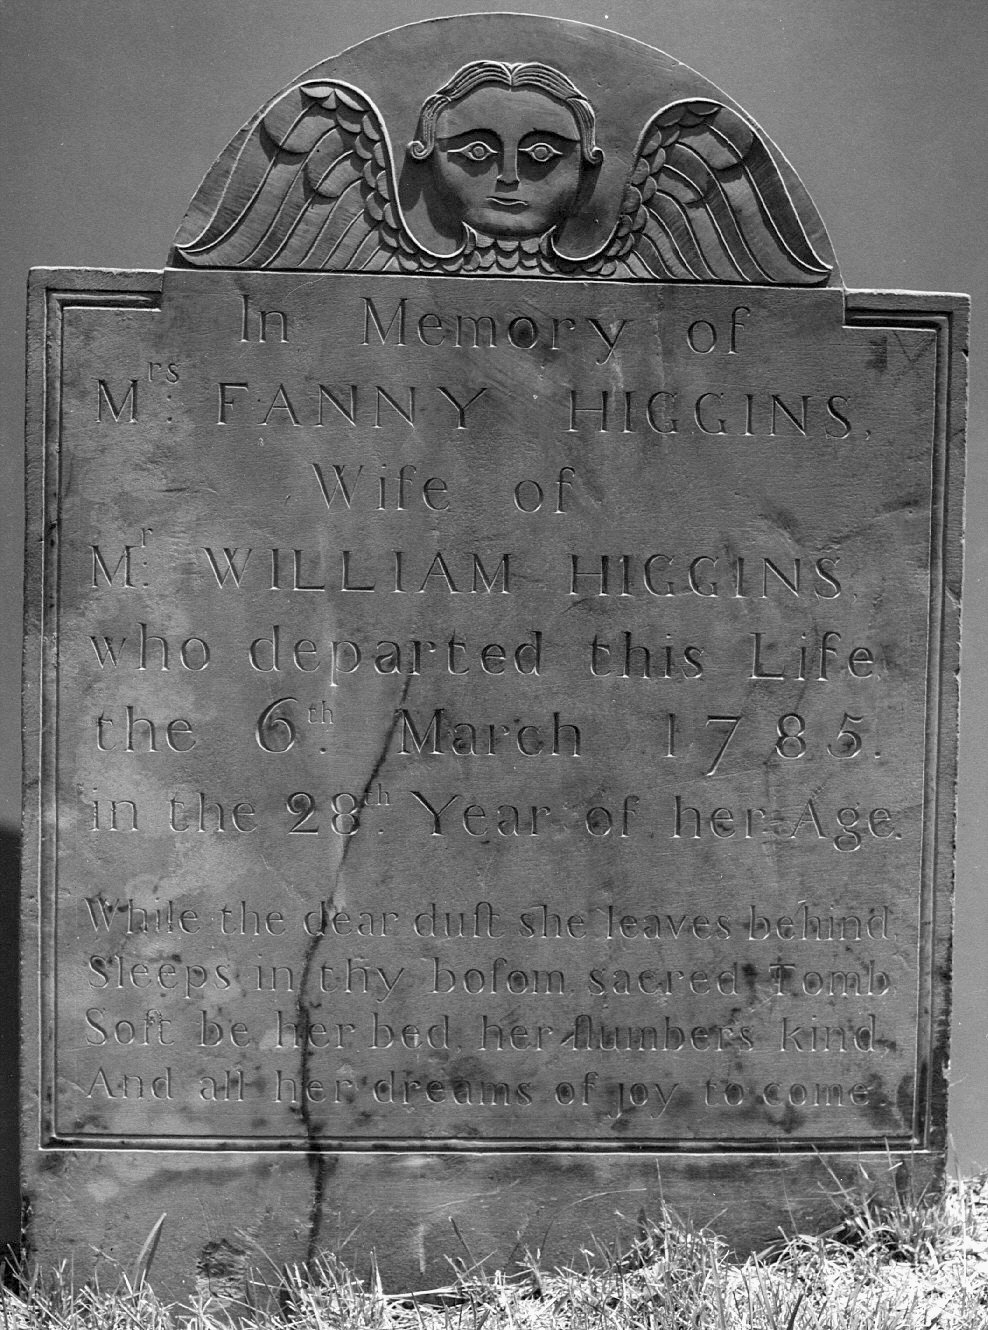 In Memory of
Mrs. FANNY HIGGINS,
Wife of
Mr. WILLIAM HIGGINS,
who departed this Life
the 6th. March 1785.
in the 28th. Year of her Age.
While the dear duſt she leaves behind
Sleeps in thy boſom sacred Tomb
Soft be her bed her ſlumbers kind
And all her dreams of joy to come